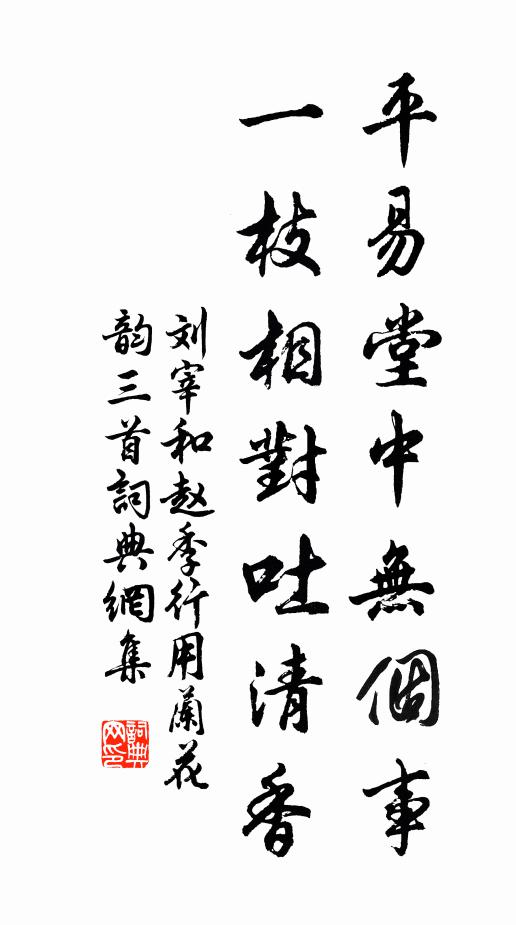 平易堂中無個事
一枝相對吐清香
刘宰和赵季行用蘭花
韵三首詞典網集
詞典
网印